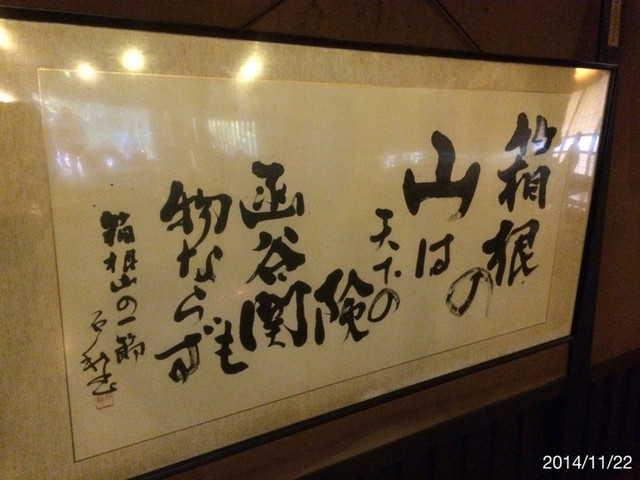 箱根の
山は
天下の
険
函谷関も
物ならず
箱根山の一節
2014/11/22